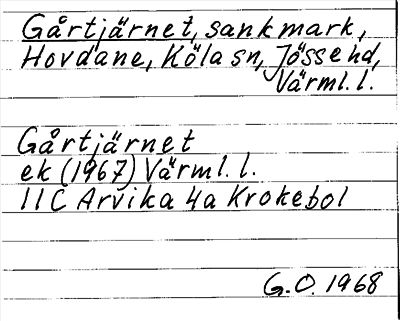 Gårtjärnet, sankmark,
Hovdane, Köla sn, Jösse hd,
Värml. l.
Gårtjärnet
ek (1967) Värml. l.
11C Arvika 4a Krokebol
G.O. 1968